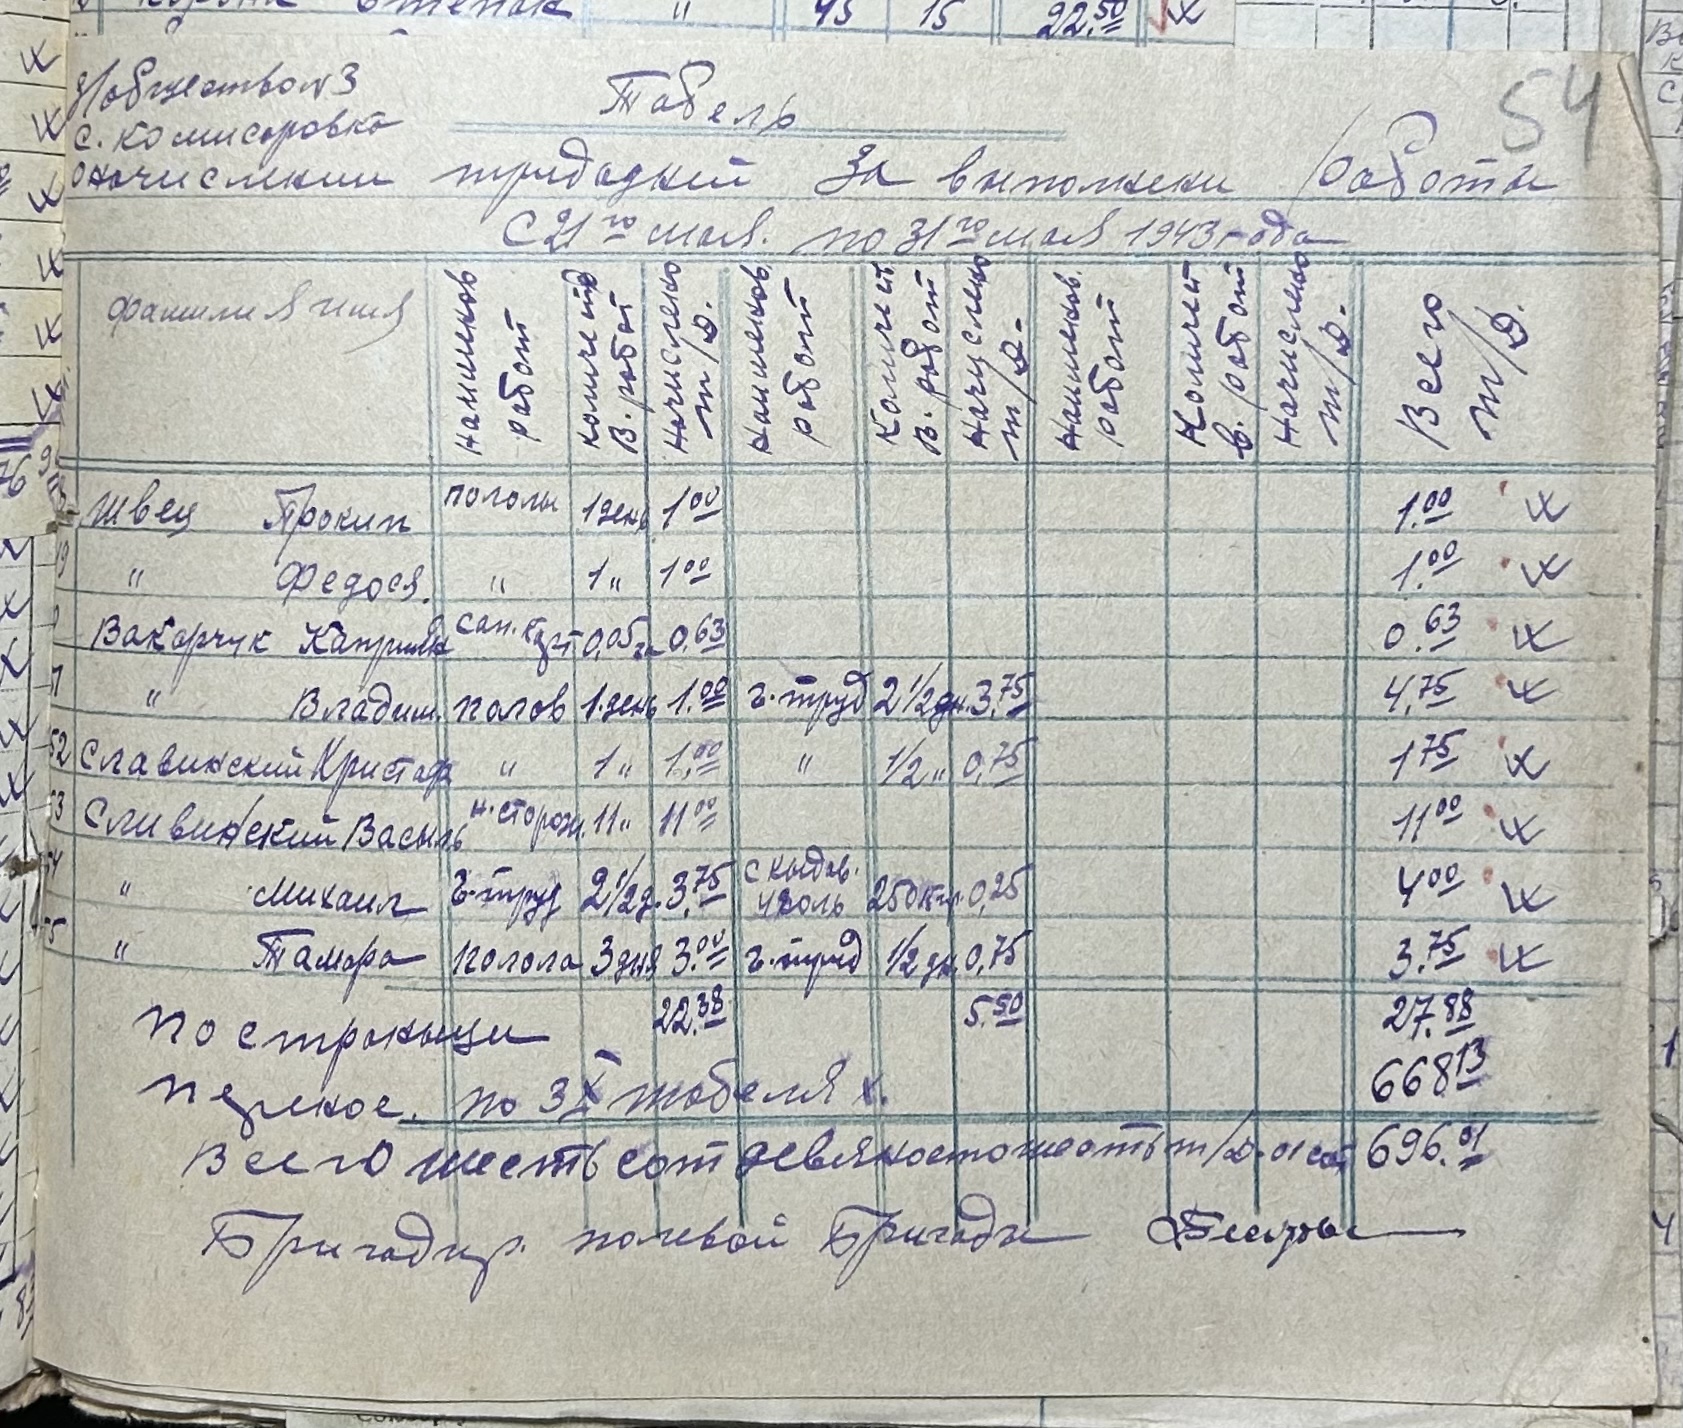 45 15 22.50
54
общество N3
с. Комисаровка
Табель
о начислении трудодней за выполнени работы
с 21го мая. по 31го мая 1943 года
фамилия имя
Наименов работ
Количест в. работ
Начислено т/д.
Наименов. работ
Количест в. работ
Начислено т/д.
Наименов. работ
Количест в. работ
Начислено т/д.
Всего т/д.
Швец Прокип пололи 1 день 1.00 1.00
19 " Федося. " 1 " 1.00 1.00
Вакарчук 0,05 га 0,63 0.63
" Владим. полов 1 день 1.00 г. труд 2 1/2 дн. 3.75 4,75
52 Славинский Кристофр " 1 " 1.00 " 1/2 " 0,75 1.75
53 Сливинский Васыль н. сторож. 11 " 11.00 11.00
54 " Михаил г. труд 2 1/2 д. 3.75 250 кгр. 0,25 4.00
55 " Тамара полола 3 дня 3.00 г. труд 1/2 дн. 0,75 3.75
По строныци 22.38 5.50 27.88
по 3х табелях. 668.13
Всего шестьсот девяностошесть т/д. 01 сот 696.01
Бригадир. полевой Бригады